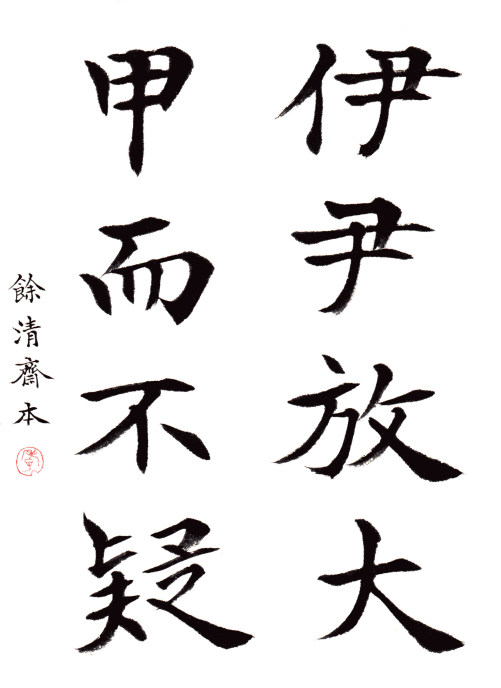 伊尹放大
甲而不疑
餘清齋本